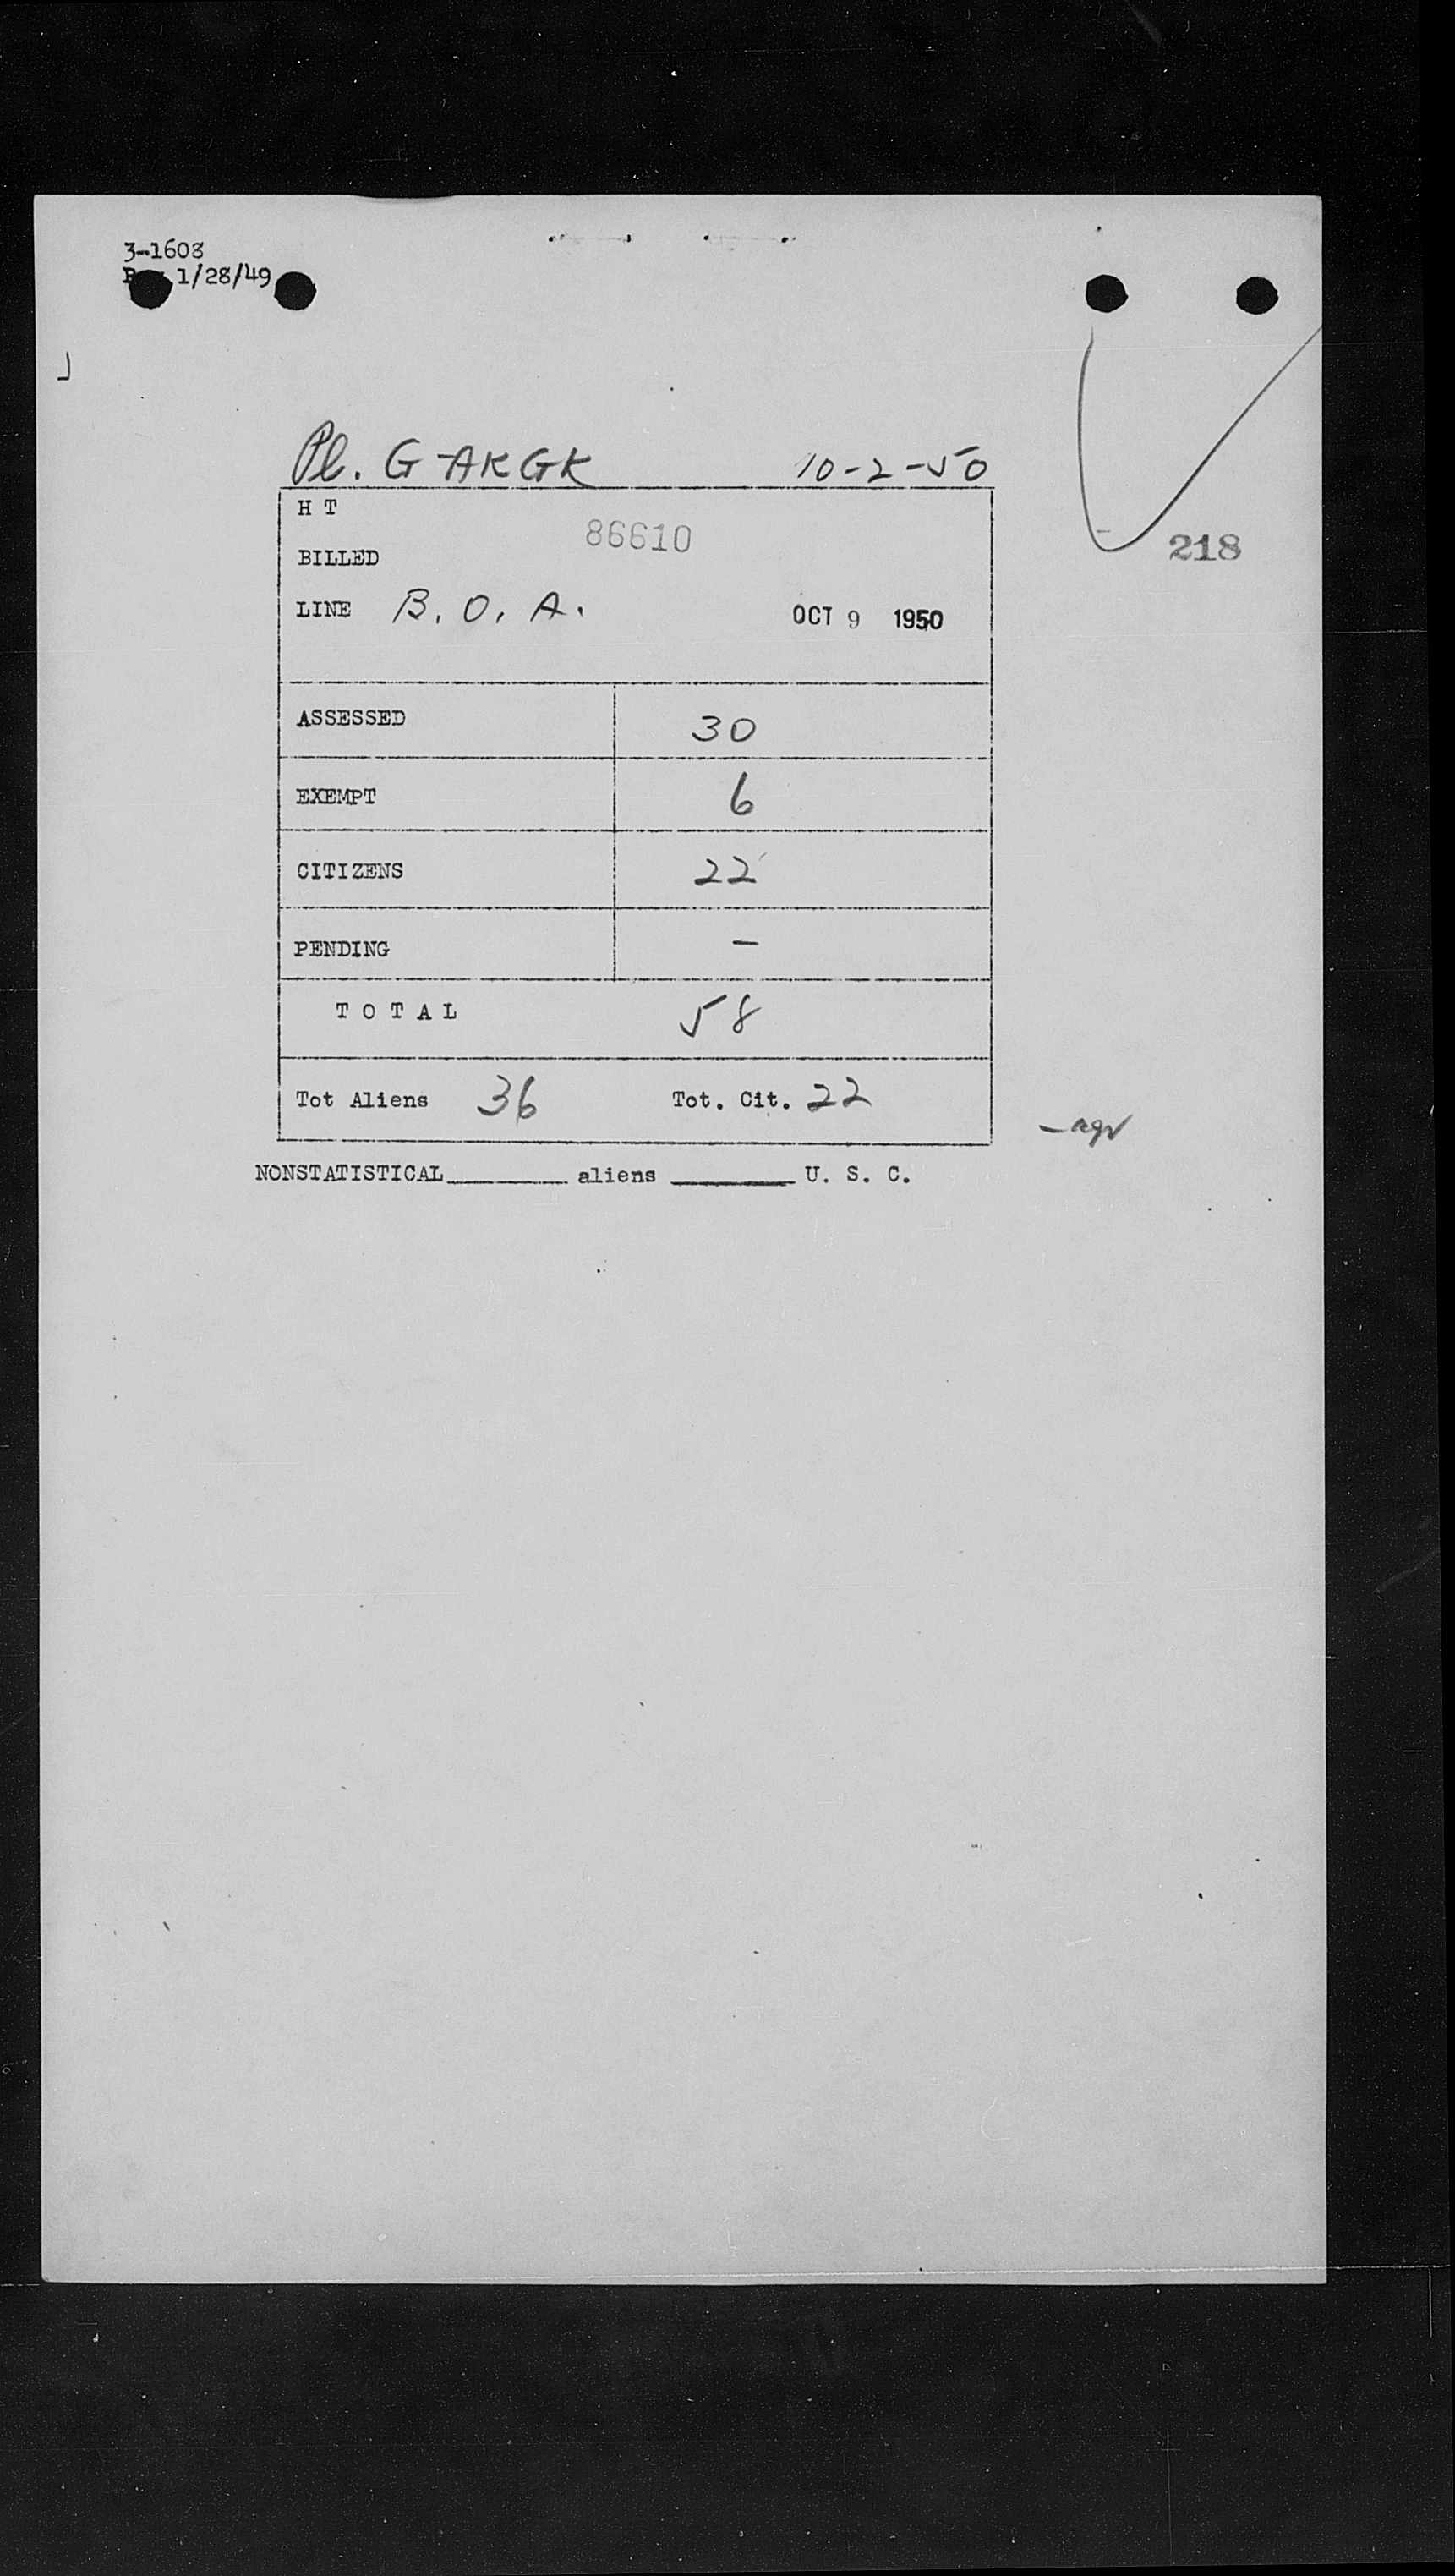 3-1608
1/28/49
Pl. G-AKGK 10-2-50
H T
86610
BILLED
218
LINE B. O. A.
OCT 9 1950
ASSESSED 30
EXEMPT 6
CITIZENS 22
PENDING –
TOTAL 58
Tot Aliens 36 Tot. Cit. 22
NONSTATISTICAL________ aliens ________ U. S. C.